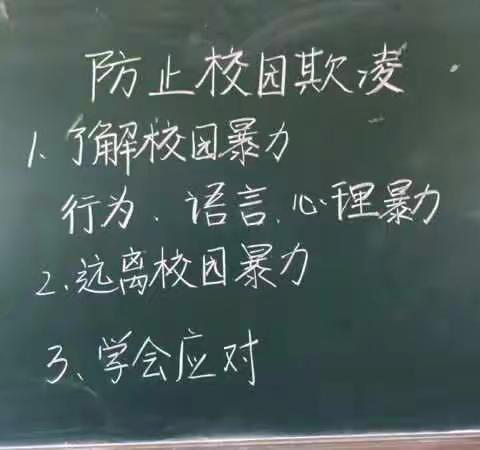 防止校园欺凌
1、了解校园暴力
行为、语言、心理暴力
2、远离校园暴力
3、学会应对